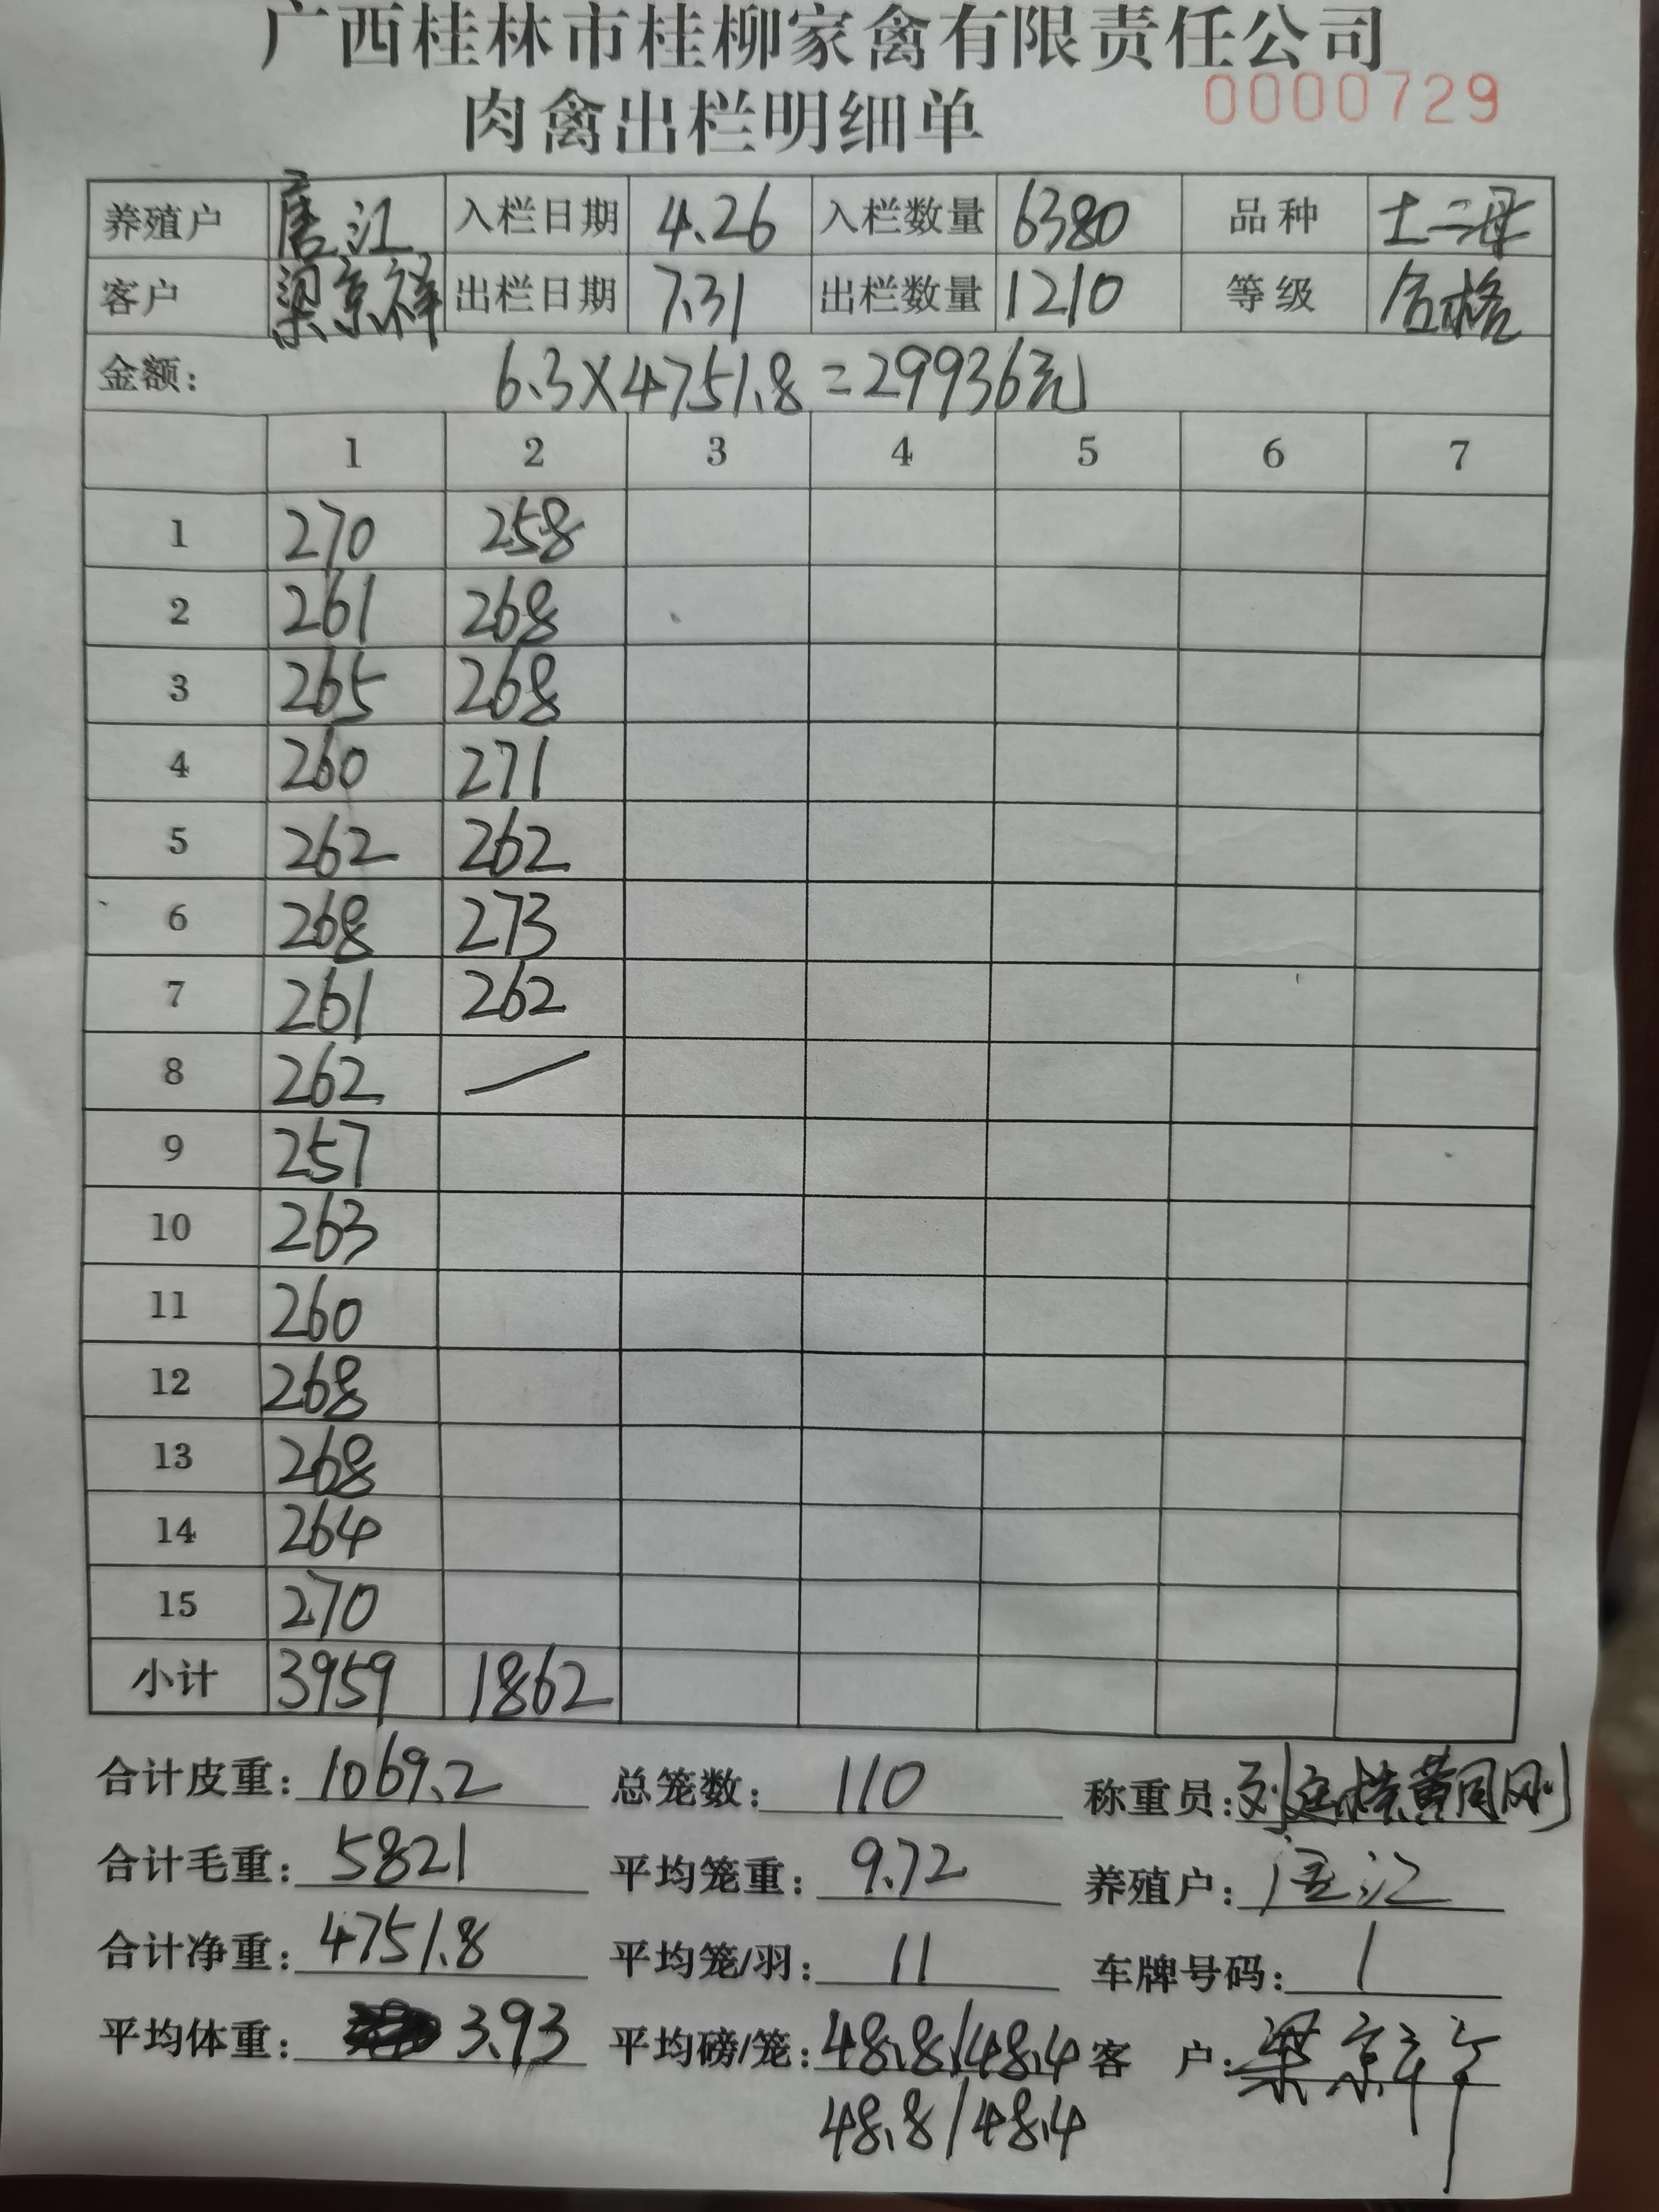 广西桂林市桂柳家禽有限责任公司
肉禽出栏明细单 0000729
养殖户 唐江 入栏日期 4.26 入栏数量 6380 品种 土二母
客户 梁京祥 出栏日期 7.31 出栏数量 1210 等级 合格
金额: 6.3×4751.8=29936元
1 2 3 4 5 6 7
1 270 258
2 261 268
3 265 268
4 260 271
5 262 262
6 268 273
7 261 262
8 262 /
9 257
10 263
11 260
12 268
13 268
14 264
15 270
小计 3959 1862
合计皮重: 1069.2 总笼数: 110 称重员: 黄同刚
合计毛重: 5821 平均笼重: 9.72 养殖户: 唐江
合计净重: 4751.8 平均笼/羽: 11 车牌号码: 1
平均体重: 3.93 平均磅/笼: 48.8/48.4 客 户: 梁京祥
48.8/48.4